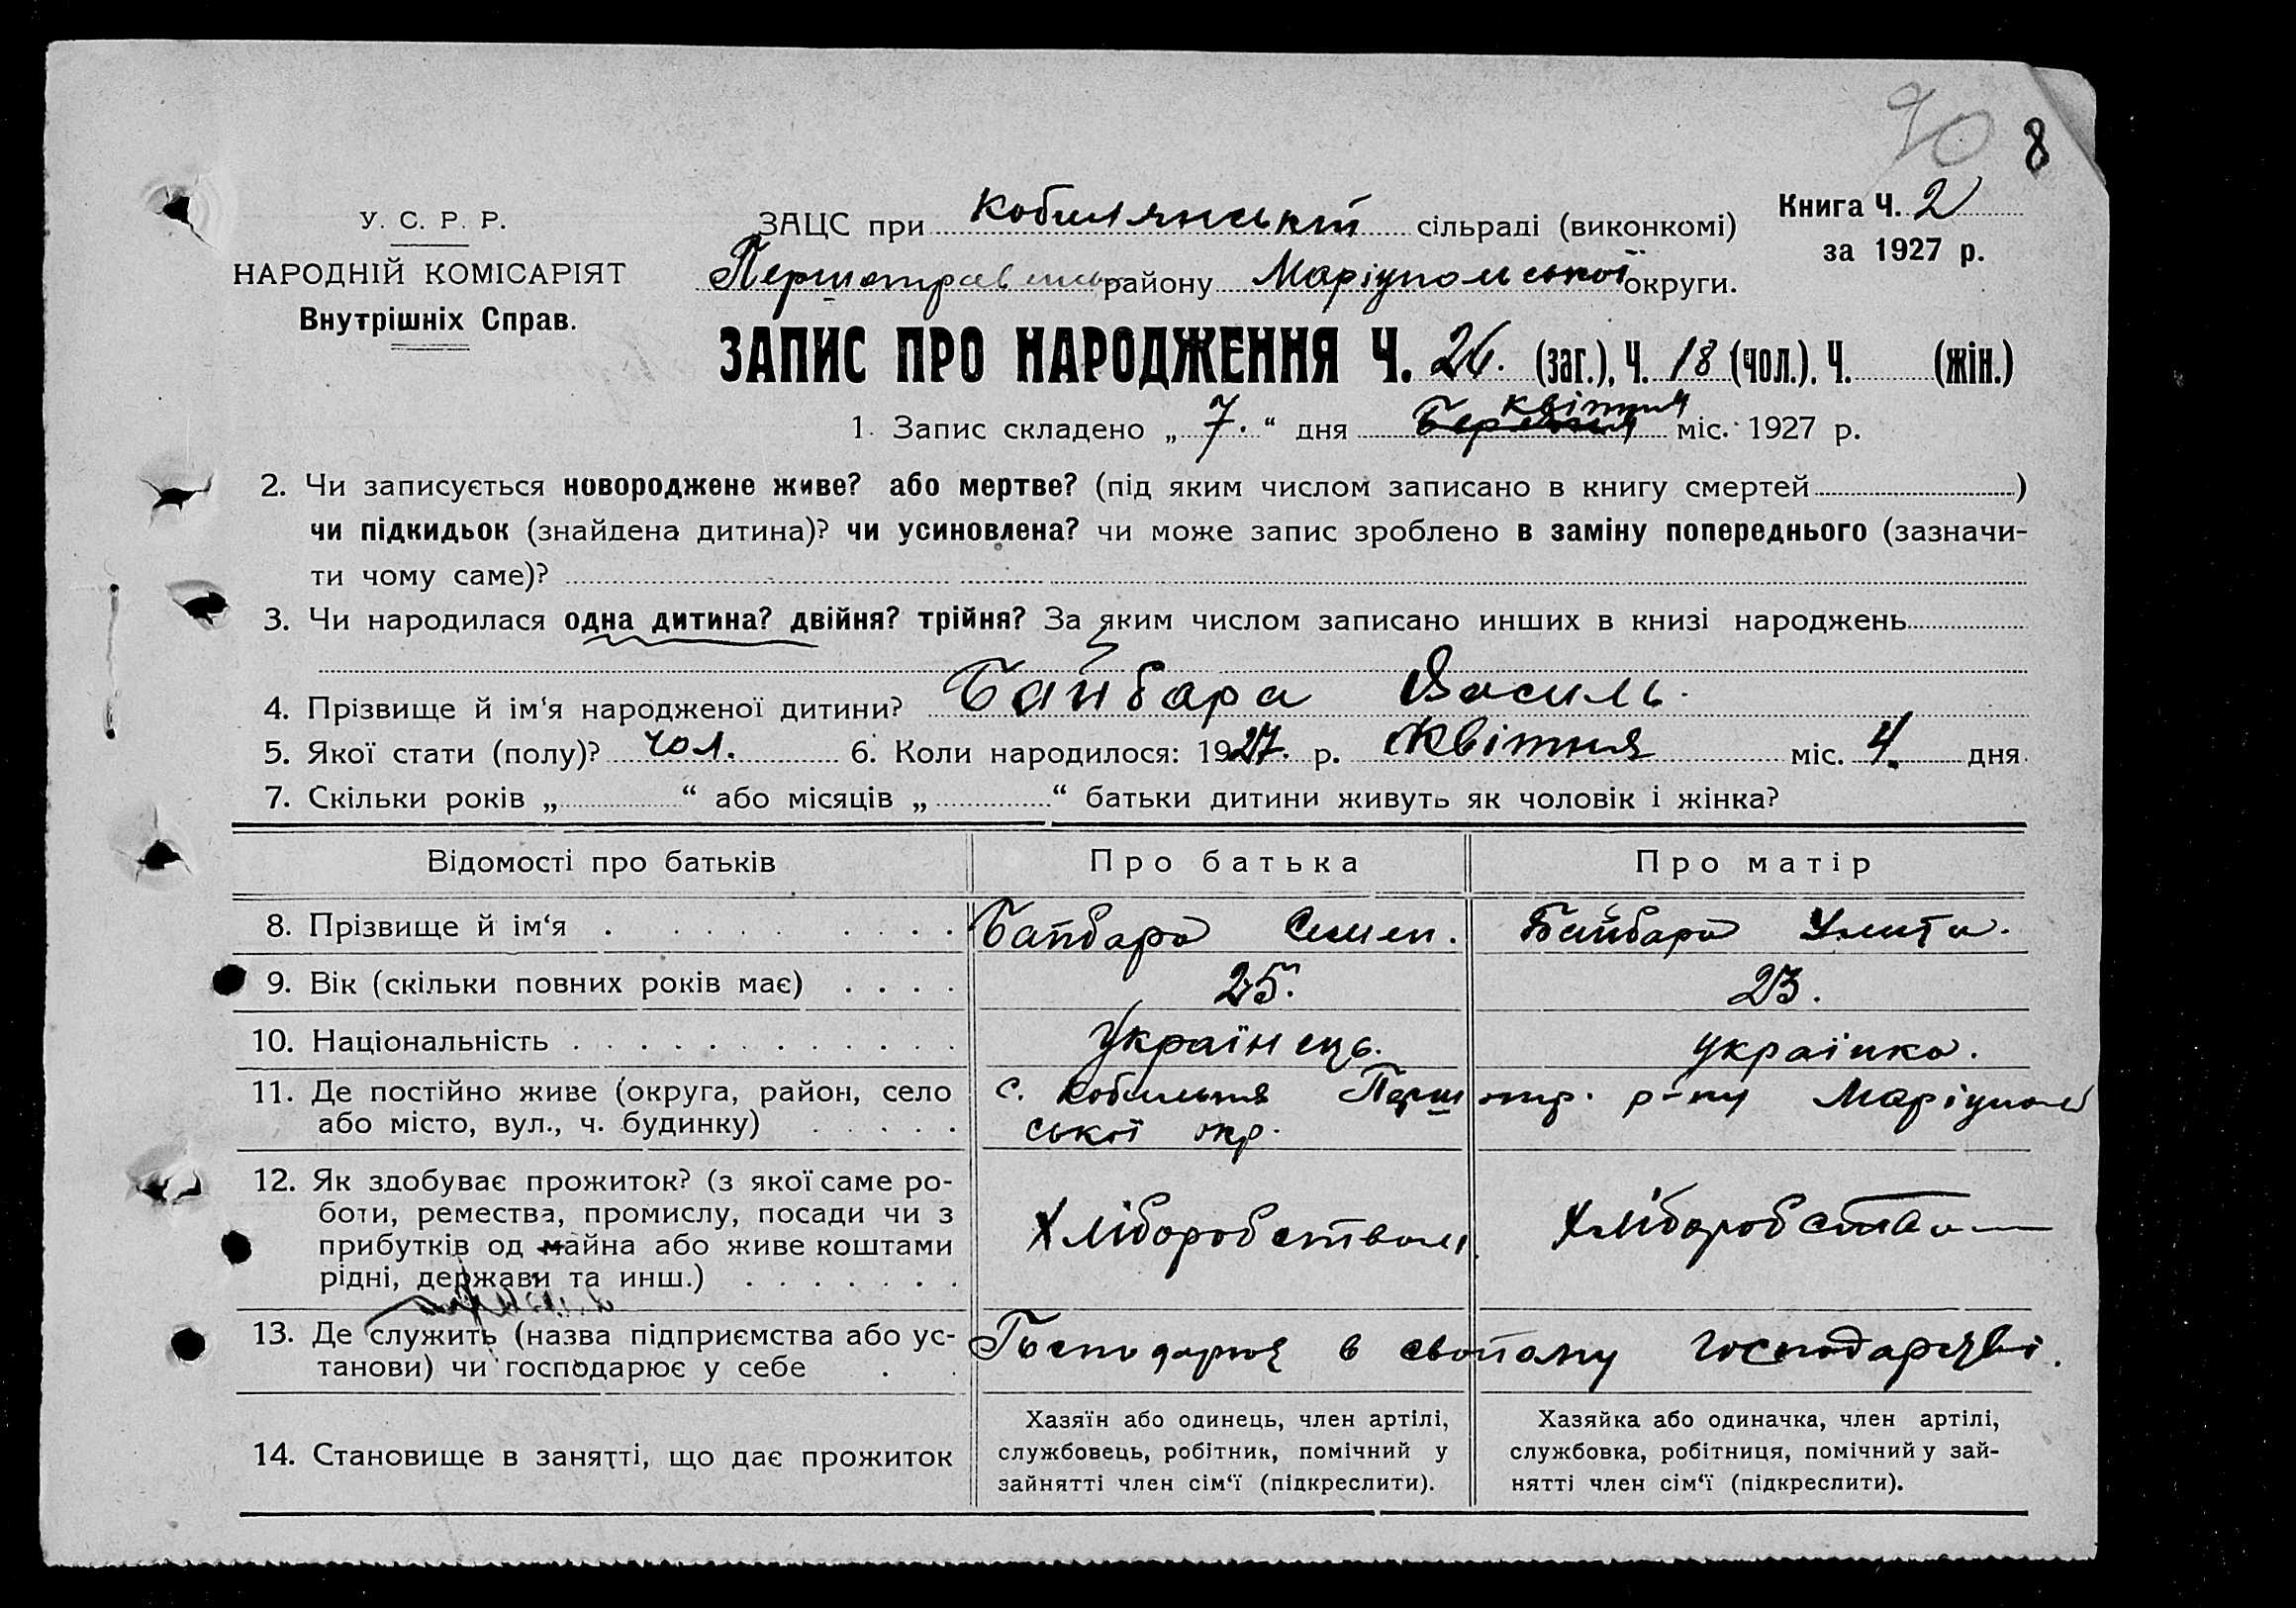 90 8
У. С. Р. Р.
НАРОДНІЙ КОМІСАРІЯТ
Внутрішніх Справ.
ЗАЦС при Кобилянській сільраді (виконкомі)
Книга Ч. 2
за 1927 р.
Першотравенськ району Маріупольської округи.
ЗАПИС ПРО НАРОДЖЕННЯ Ч. 26. (заг.), Ч. 18 (чол.), Ч. (жін.)
квітня
1. Запис складено „ 7. “ дня Березня міс. 1927 р.
2. Чи записується новороджене живе? або мертве? (під яким числом записано в книгу смертей )
чи підкидьок (знайдена дитина)? чи усиновлена? чи може запис зроблено в заміну попереднього (зазначи-
ти чому саме)?
3. Чи народилася одна дитина? двійня? трійня? За яким числом записано инших в книзі народжень
4. Прізвище й ім‘я народженої дитини? Байбара Василь.
5. Якої стати (полу)? чол. 6. Коли народилося: 1927. р. Квітня міс. 4. дня
7. Скільки років „ “ або місяців „ “ батьки дитини живуть як чоловік і жінка?
Відомості про батьків Про батька Про матір
8. Прізвище й ім‘я . . . . . . . . . Байбара Семен. Байбара Улита.
9. Вік (скільки повних років має) . . . . 25. 23.
10. Національність . . . . . . . . . . . . Українець. українка.
11. Де постійно живе (округа, район, село с. Кобильня Першотр. р-ну Маріуполь
або місто, вул., ч. будинку) . . . . . ської окр.
12. Як здобуває прожиток? (з якої саме ро-
боти, ремества, промислу, посади чи з
прибутків од майна або живе коштами Хліборобством Хліборобством
рідні, держави та инш.) . . . . . . .
13. Де служить (назва підприємства або ус- Господарює в свойому господарстві.
танови) чи господарює у себе . .
14. Становище в занятті, що дає прожиток
Хазяїн або одинець, член артілі,
службовець, робітник, помічний у
зайнятті член сім‘ї (підкреслити).
Хазяйка або одиначка, член артілі,
службовка, робітниця, помічний у зай-
нятті член сім‘ї (підкреслити).